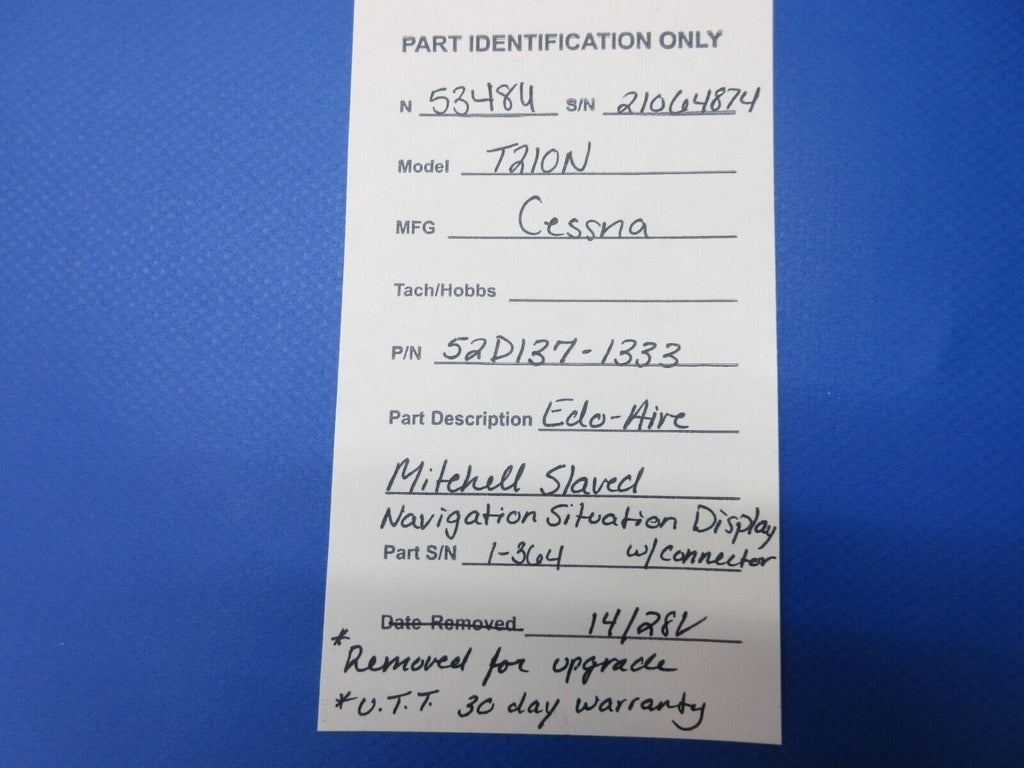 PART IDENTIFICATION ONLY
N 5348U S/N 21064874
Model T210N
MFG Cessna
Tach/Hobbs
P/N 52D137-1333
Part Description Edo-Aire
Mitchell Slaved
Navigation Situation Display
Part S/N 1-364 w/connector
Date Removed 14/28V
* Removed for upgrade
* U.T.T. 30 day warranty